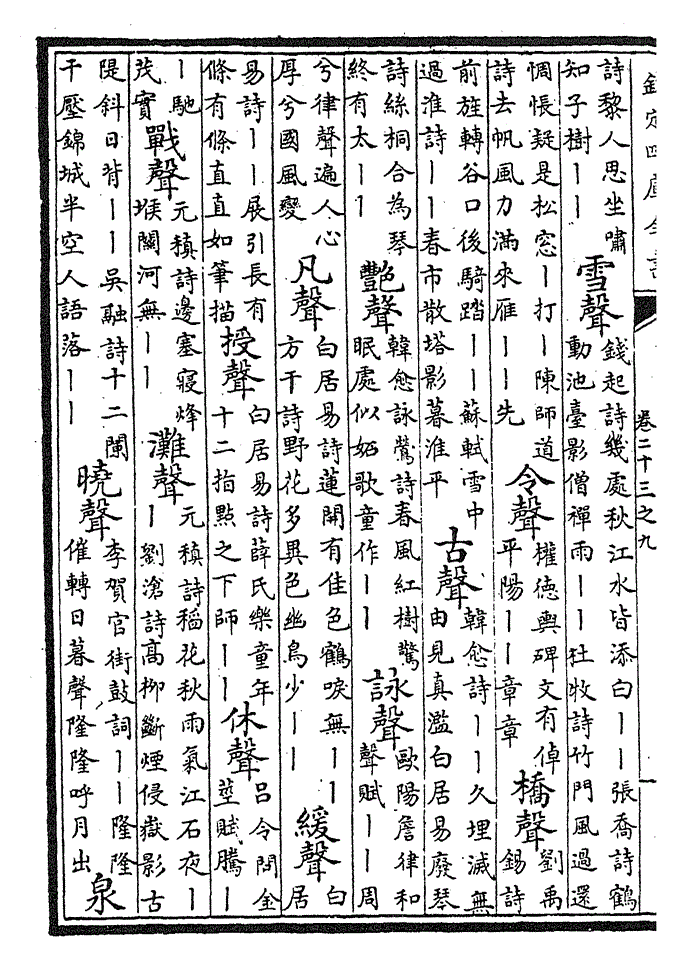 欽定四庫全書 卷二十三之九 一
詩黎人思坐嘯知子樹丨丨 雪聲 錢起詩幾處秋江水皆添白丨丨張喬詩鶴動池臺影僧禪雨丨丨杜牧詩竹門風過還
惆悵疑是松窓丨打丨陳師道詩去帆風力滿來雁丨丨先 令聲 權德輿碑文有倬平陽丨丨章章 橋聲 劉禹錫詩
前旌轉谷口後騎踏丨丨蘇軾雪中過淮詩丨丨春市散塔影暮淮平 古聲 韓愈詩丨丨久埋滅無由見真濫白居易廢琴
詩絲桐合為琴終有太丨丨 艷聲 韓愈詠鶯詩春風紅樹驚眠處似妬歌童作丨丨 詠聲 歐陽詹律和聲賦丨丨周
兮律聲遍人心厚兮國風變 凡聲 白居易詩蓮開有佳色鶴唳無丨丨方干詩野花多異色幽鳥少丨丨 緩聲 白居
易詩丨丨展引長有條有條直直如筆描 授聲 白居易詩薛氏樂童年十二指點之下師丨丨 休聲 呂令問金莖賦騰丨
丨馳茂實 戰聲 元稹詩邊塞寢烽堠關河無丨丨 灘聲 元稹詩稻花秋雨氣江石夜丨丨劉滄詩高柳斷煙侵嶽影古
隄斜日背丨丨吳融詩十二闌干壓錦城半空人語落丨丨 曉聲 李賀官街鼓詞丨丨隆隆催轉日暮聲隆隆呼月出 泉